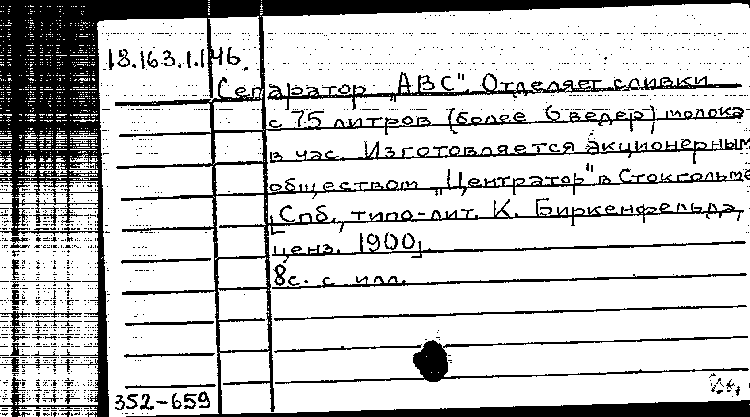 18.163.1.146.
Сепаратор „АВС". Отделяет сливки
с 75 литров (более 6 ведер) молока
в час. Изготовляется акционерным
обществом „Центратор" в Стокгольме
[Спб., типо-лит. К. Биркенфельда,
ценз. 1900]
8с. с илл.
352-659